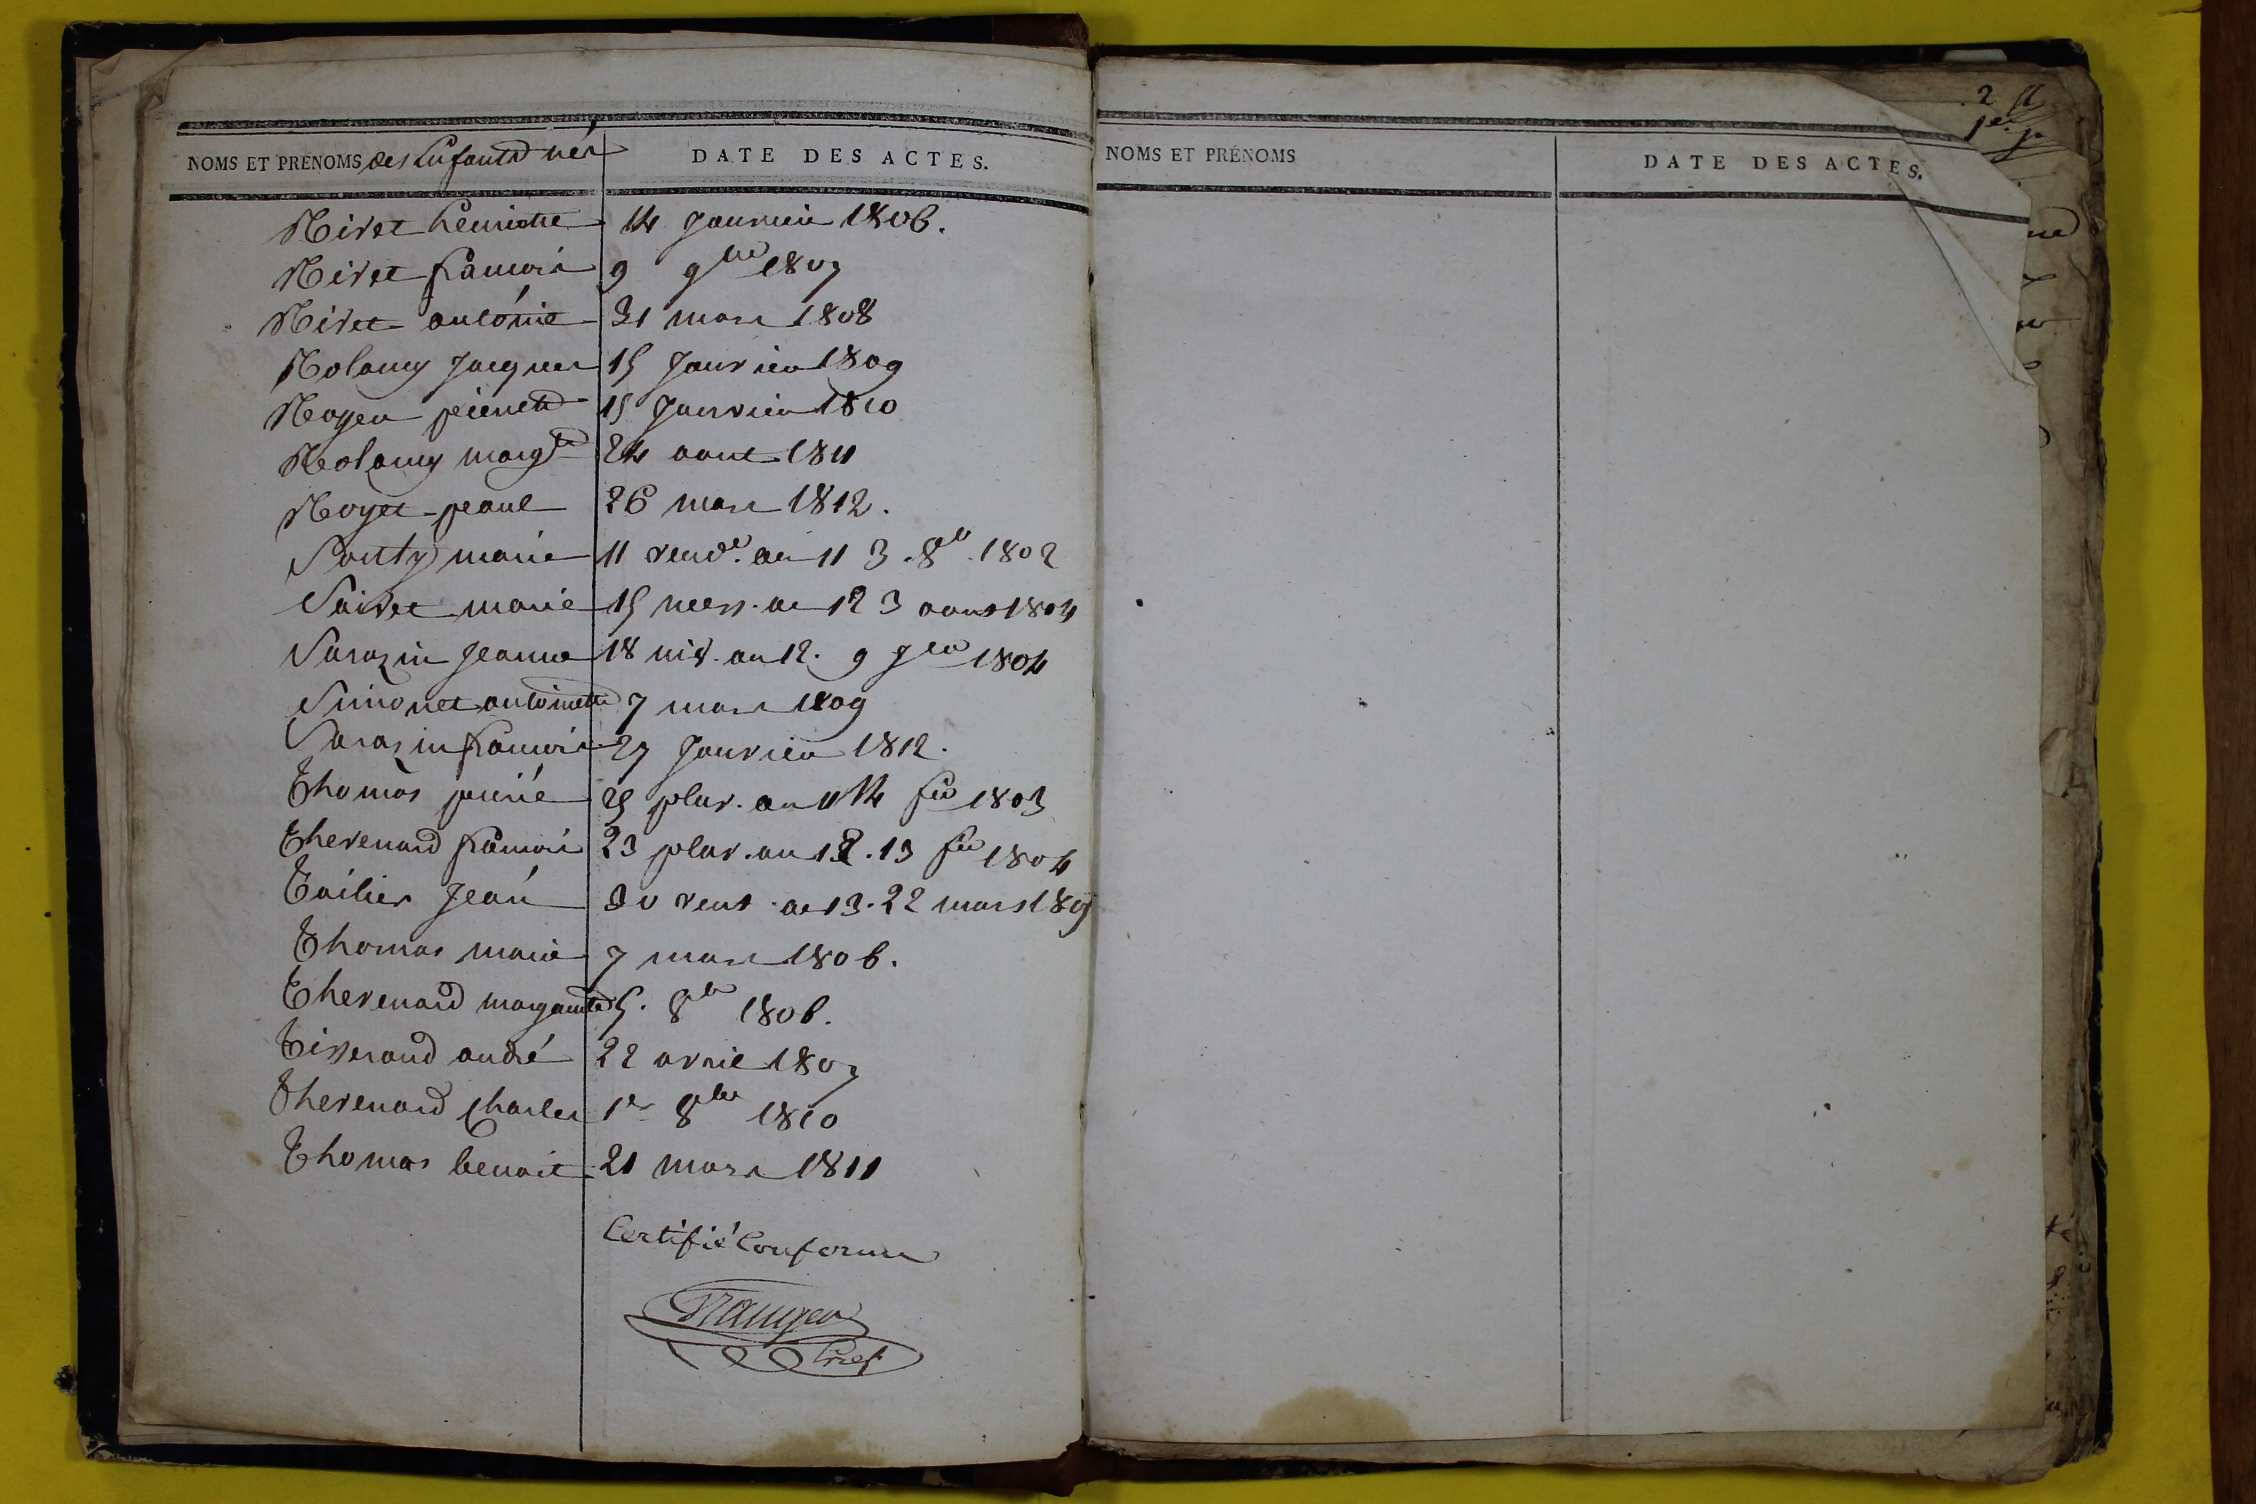 NOMS ET PRENOMS des Enfants nés DATE DES ACTES.
Rivet henriette 14 Janvier 1806.
Rivet francois 9 9bre 1807
Rivet antoine 31 mars 1808
Rolamy Jacques 15 Janvier 1809
Royer pierrette 15 Janvier 1810
Rolamy margte 24 aout 1811
Royet paul 26 mars 1812.
Souty marie 11 vendre. an 11 3. 8bre. 1802
Saivet marie 15 mess. an 12 3 aout 1804
Sarazin Jeanne 18 niv. an 12. 9 Jer 1804
Simonet antoinette 7 mars 1809
Sarazin francois 27 Janvier 1812.
Thomas pierre 25 pluv. an 11 14 fer 1803
Thevenard francois 23 pluv. an 12. 13 fer 1804
Tailier Jean 30 vent. an 13. 22 mars 1805
Thomas marie 7 mars 1806.
Thevenard margueritte 5. 8bre 1806.
Tisserand andré 22 avril 1807
Thevenard Charles 1er 8bre 1810
Thomas benoit 21 mars 1811
Certifié Conforme
Gref
NOMS ET PRÉNOMS DATE DES ACTES.